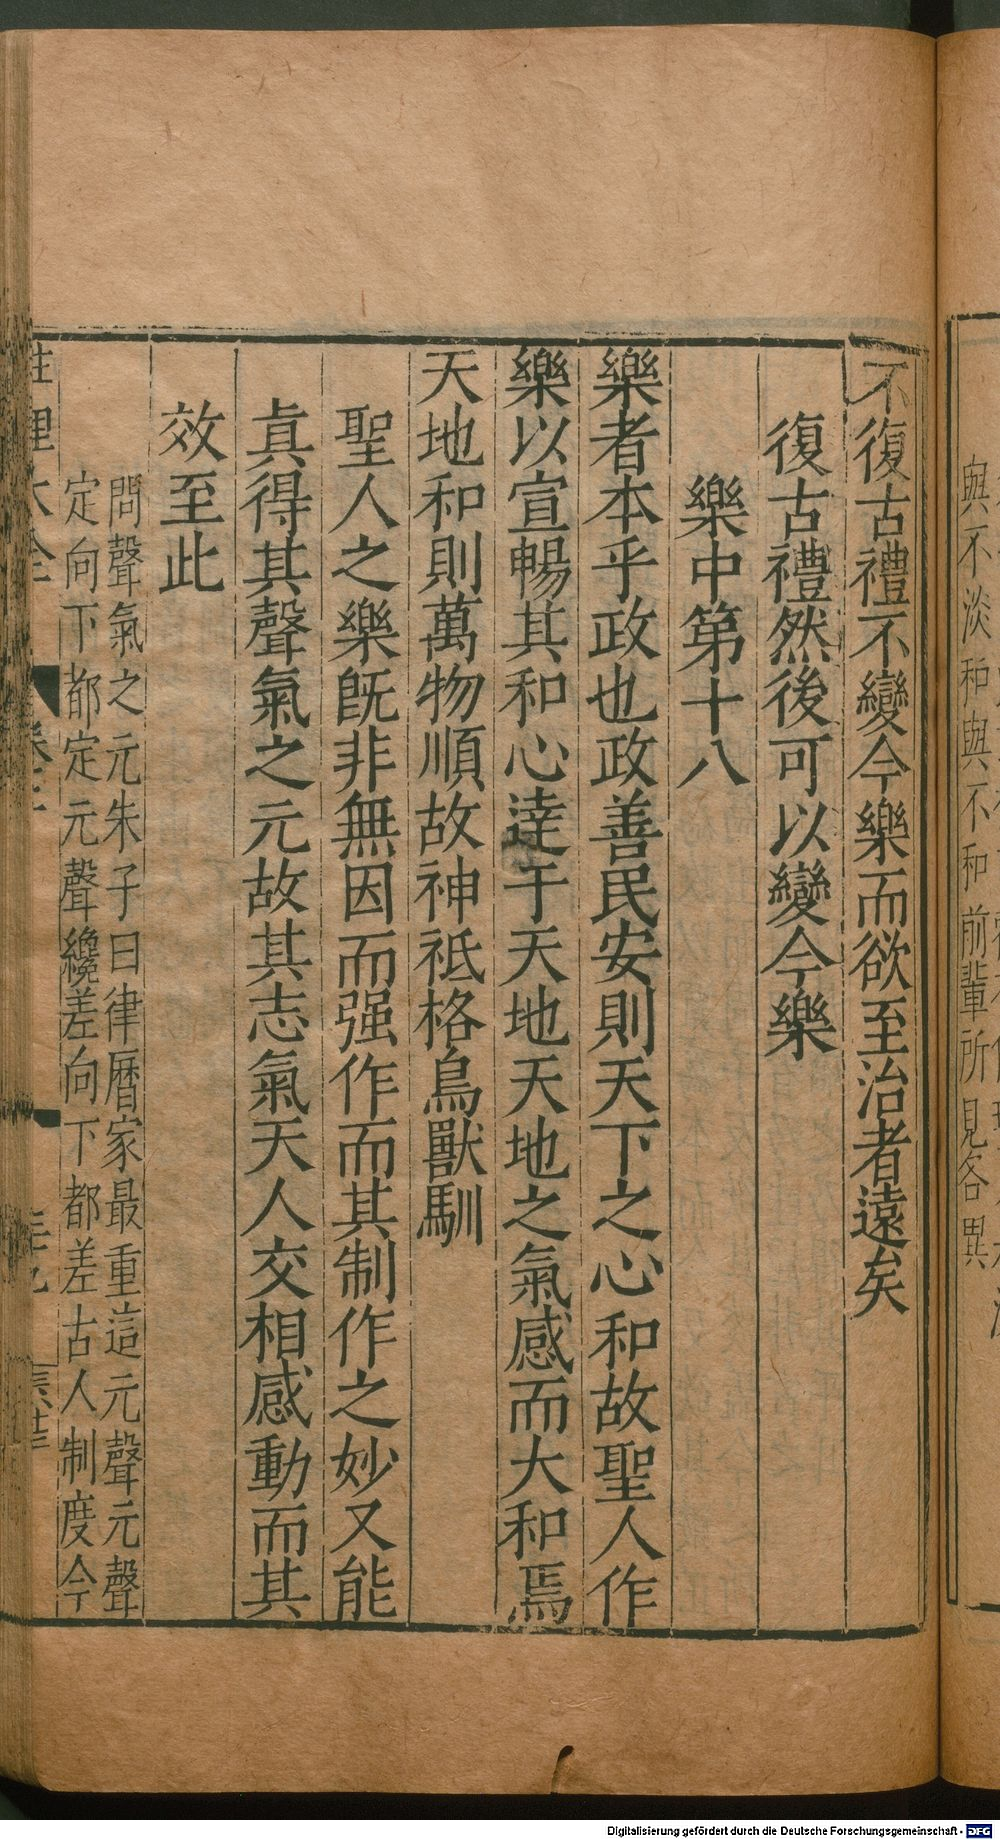 與不淡和與不和前輩所見各異
不復古禮不變今樂而欲至治者遠矣
復古禮然後可以變今樂
樂中第十八
樂者本乎政也政善民安則天下之心和故聖人作
樂以宣暢其和心達于天地天地之氣感而大和焉
天地和則萬物順故神祗格鳥獸馴
聖人之樂旣非無因而强作而其制作之妙又能
眞得其聲氣之元故其志氣天人交相感動而其
效至此
問聲氣之元朱子曰律曆家最重這元聲元聲
定向下都定元聲纔差向下都差古人制度今
Digitalisierung gefördert durch die Deutsche Forschungsgemeinschaft - DFG